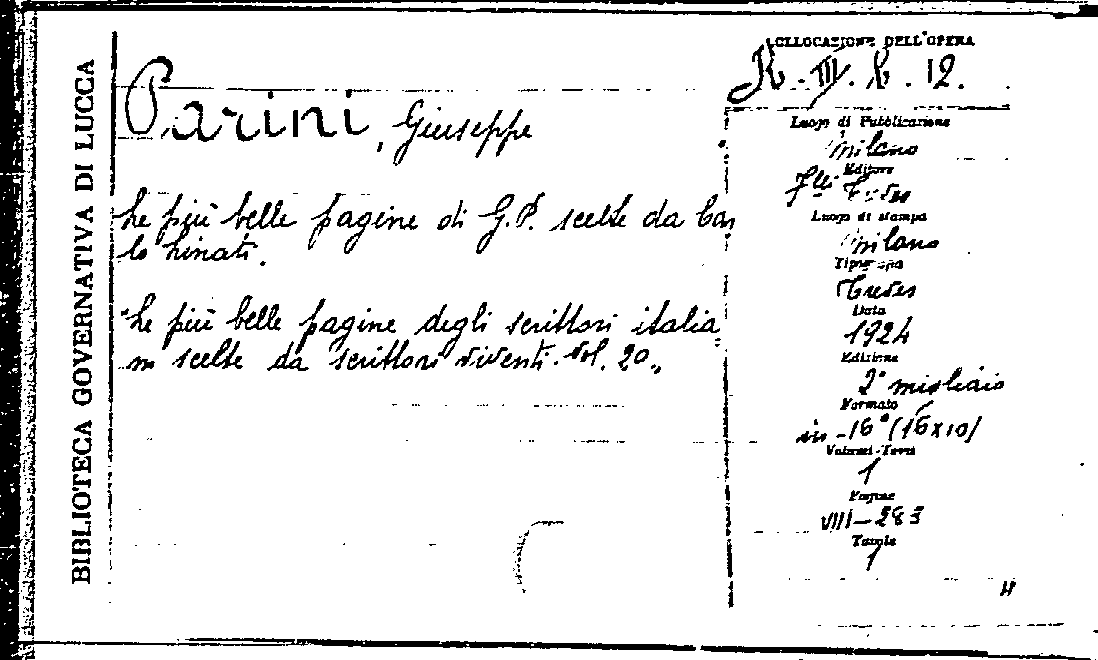 BIBLIOTECA GOVERNATIVA DI LUCCA
Parini, Giuseppe
Le più belle pagine di G.P. scelte da Car
lo Linati.
"Le più belle pagine degli scrittori italia
ni scelte da scrittori viventi. Vol. 20„
COLLOCAZIONE DELL'OPERA
K. III. b. 12.
Luogo di Pubblicazione
Milano
Editore
F.lli Treves
Luogo di stampa
Milano
Tipografia
Treves
Data
1924
Edizione
2° migliaio
Formato
in-16° (16x10)
Volumi-Tomi
1
Pagine
VIII-283
Tavole
1